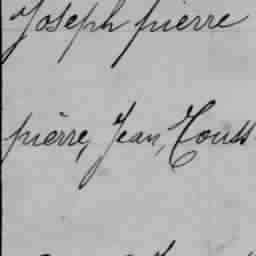 Joseph pierre
pièrre, Jean, Touss